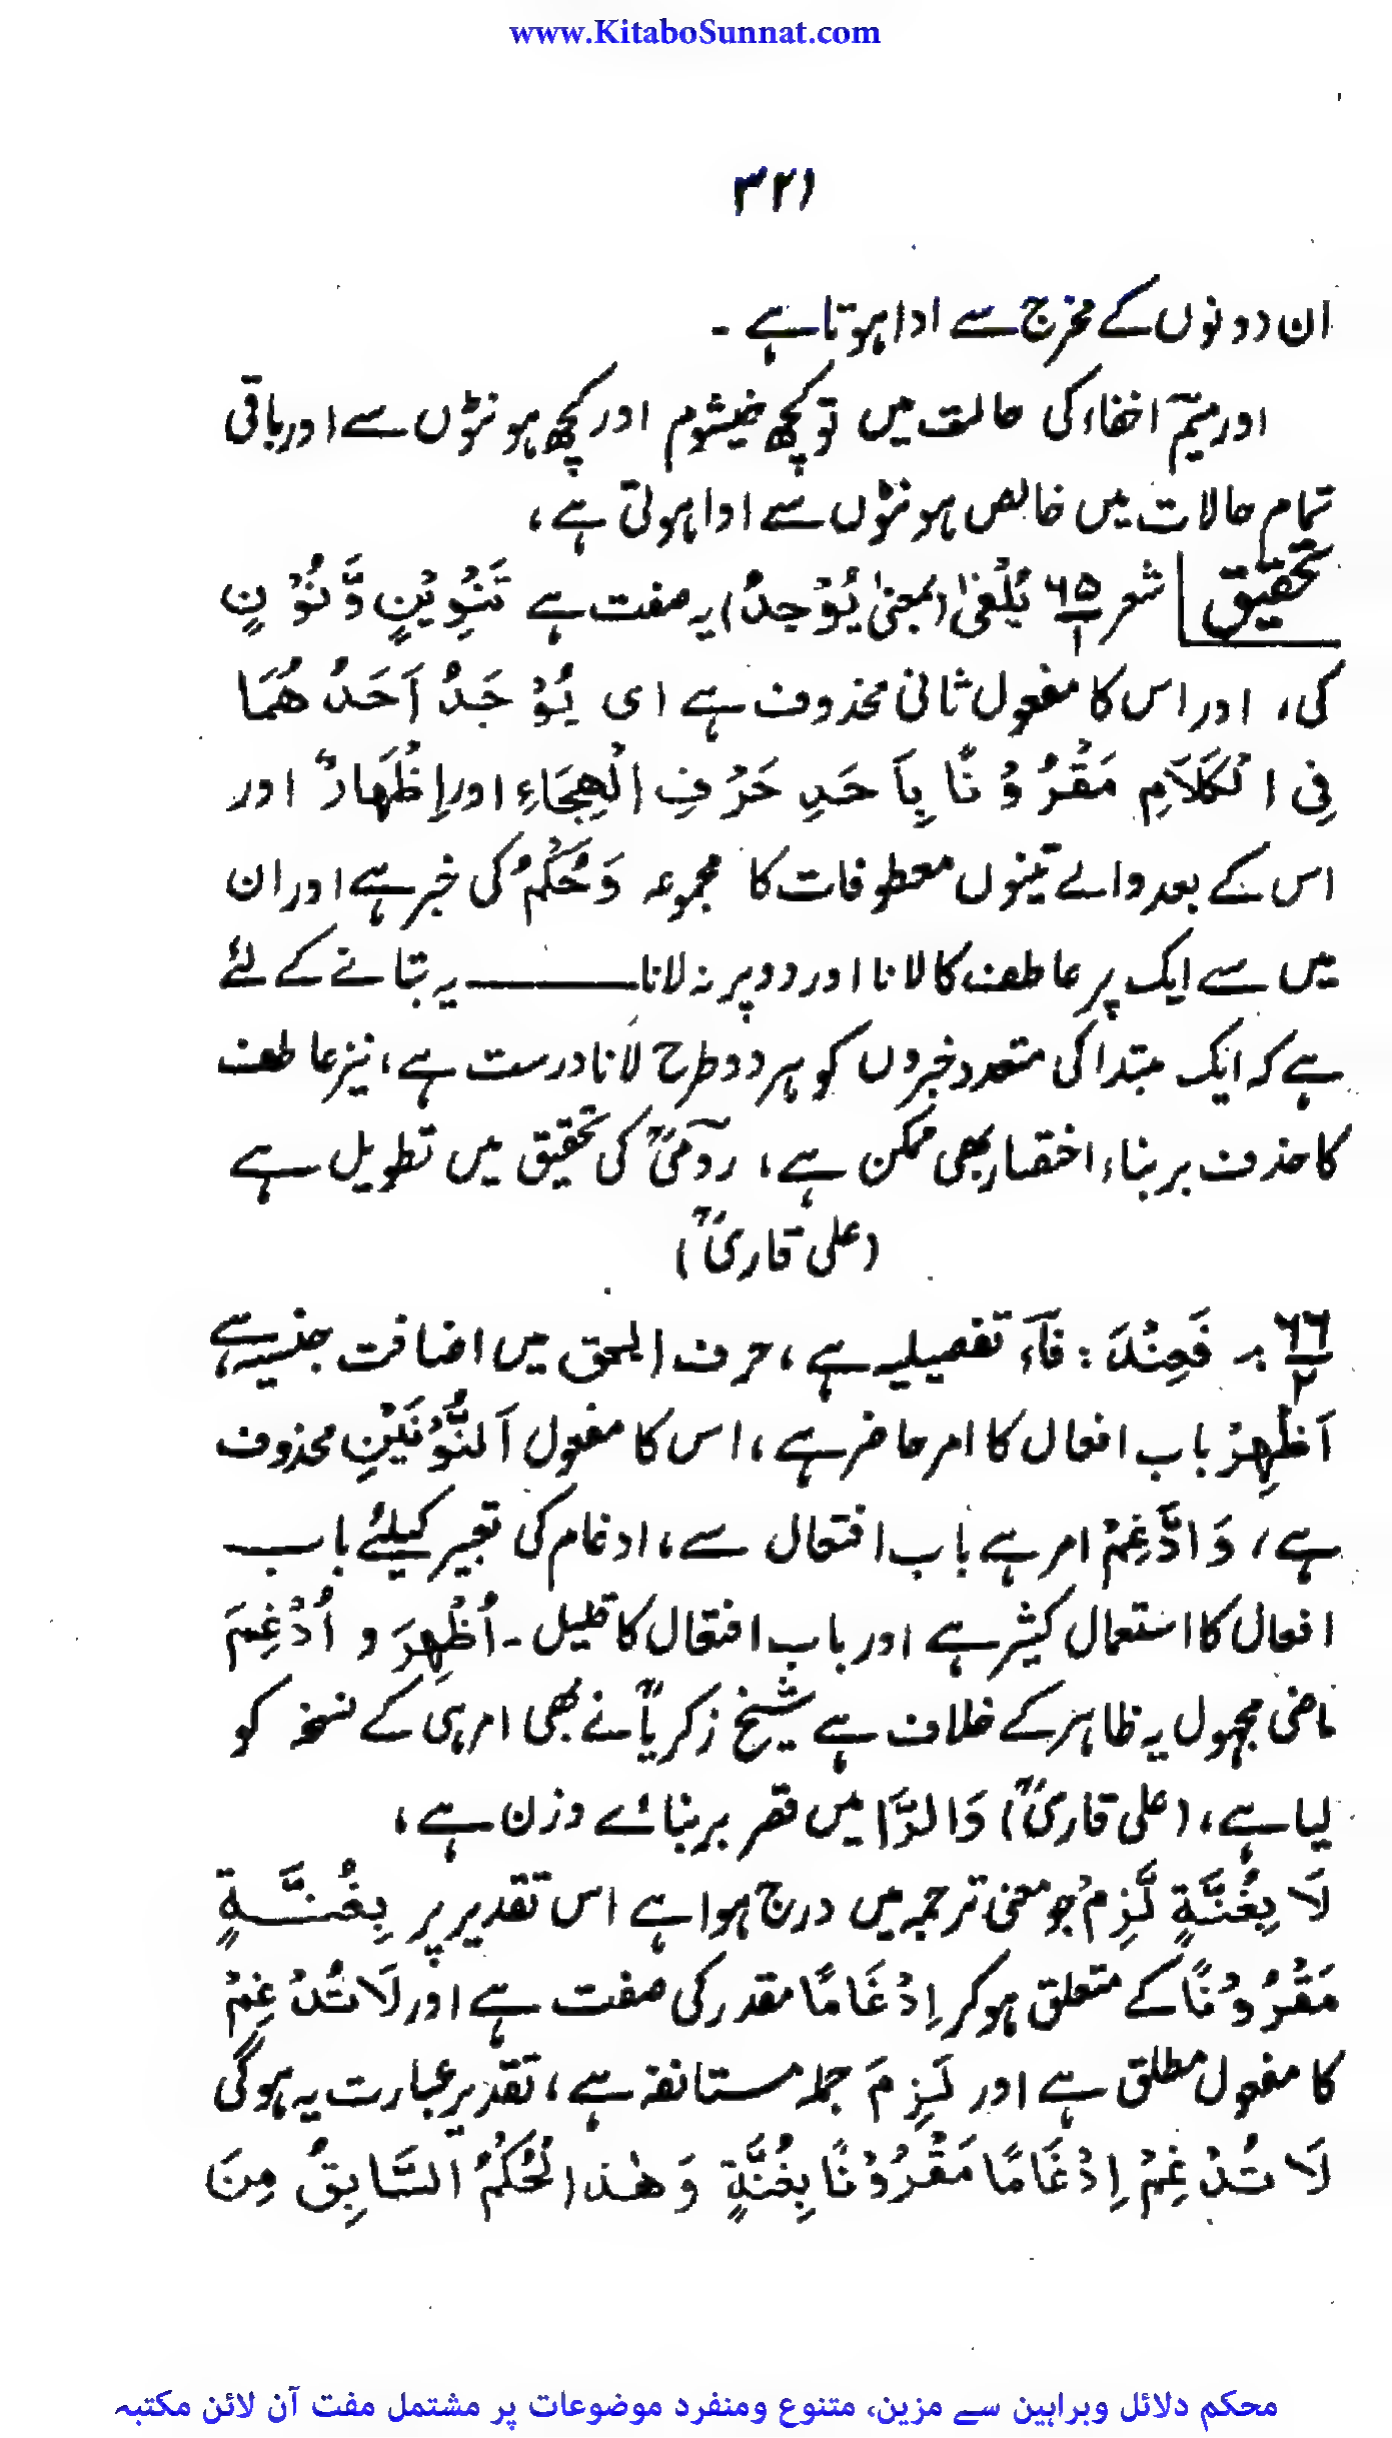 www.KitaboSunnat.com
۳۲۱
ان دونوں کے مخرج سے ادا ہوتا ہے ۔
اور میمؔ اخفاء کی حالت میں تو کچھ خیشوم اور کچھ ہونٹوں سے اور باقی
تمام حالات میں خالص ہونٹوں سے ادا ہوتی ہے،
تحقیق شعر ۶۵/۱ یُلْفٰی (بمعنیٰ یُوْجَدُ) یہ صفت ہے تَنْوِیْنٍ وَّنُوْنٍ
کی، اور اس کا مفعول ثانی محذوف ہے ای یُوْجَدُ اَحَدُ هُمَا
فِی الْکَلَامِ مَقْرُوْنًا بِاَحَدِ حَرْفِ الْهِجَاءِ اور اِظْهَارٌ اور
اس کے بعد والے تینوں معطوفات کا مجموعہ وَحُکْمُ کی خبر ہے اور ان
میں سے ایک پر عاطف کا لانا اور دو پر نہ لانا ــــــــ یہ بتانے کے لئے
ہے کہ ایک مبتدا کی متعدد خبروں کو ہر دو طرح لانا درست ہے، نیز عاطف
کا حذف بر بناء اختصار بھی ممکن ہے، رومیؒ کی تحقیق میں تطویل ہے
(علی قاریؒ)
۶۶/۲ : فَعِنْدَ : فآء تفصیلیہ ہے، حرف الحلق میں اضافت جنسیہ ہے
اَظْهِرْ باب افعال کا امر حاضر ہے، اس کا مفعول اَلنُّوْنَیْنِ محذوف
ہے، وَادَّغِمْ امر ہے باب افتعال سے، ادغام کی تعبیر کیلئے باب
افعال کا استعمال کثیر ہے اور باب افتعال کا قلیل ۔ اُظْهِرَ و اُدْغِمَ
ماضی مجہول یہ ظاہر کے خلاف ہے شیخ زکریاؒ نے بھی امر ہی کے نسخہ کو
لیا ہے، (علی قاریؒ) وَالرَّا میں قصر بر بنائے وزن ہے،
لَا بِغُنَّةٍ لَّزِمْ جو معنی ترجمہ میں درج ہوا ہے اس تقدیر پر بِغُنَّةٍ
مَقْرُوْنًا کے متعلق ہو کر اِدْغَامًا مقدر کی صفت ہے اور لَا تُدْغِمْ
کا مفعول مطلق ہے اور لَزِمَ جملہ مستانفہ ہے، تقدیر عبارت یہ ہوگی
لَا تُدْغِمْ اِدْغَامًا مَقْرُوْنًا بِغُنَّةٍ وَهٰذَا الْحُکْمُ السَّابِقُ مِنَ
محکم دلائل وبراہین سے مزین، متنوع ومنفرد موضوعات پر مشتمل مفت آن لائن مکتبہ